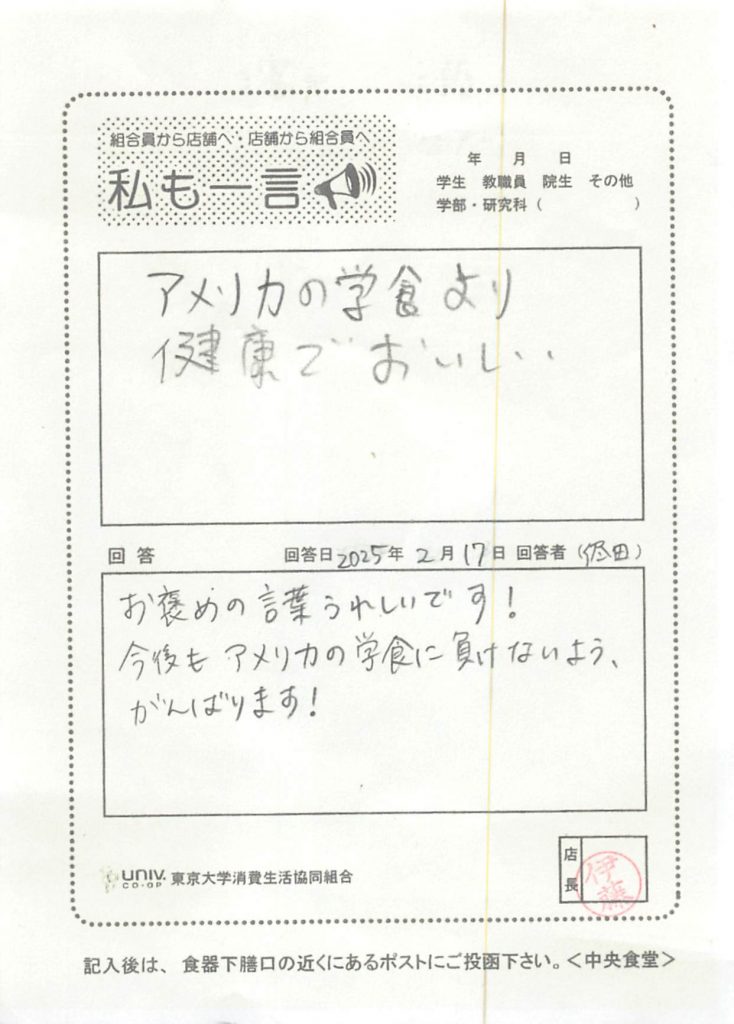 組合員から店舗へ・店舗から組合員へ
私も一言
年 月 日
学生 教職員 院生 その他
学部・研究科( )
アメリカの学食より
健康でおいしい
回答 回答日2025年2月17日 回答者( 田)
お褒めの言葉うれしいです!
今後もアメリカの学食に負けないよう、
がんばります!
UNIV.
CO-OP
東京大学消費生活協同組合
店長
伊藤
記入後は、食器下膳口の近くにあるポストにご投函下さい。<中央食堂>